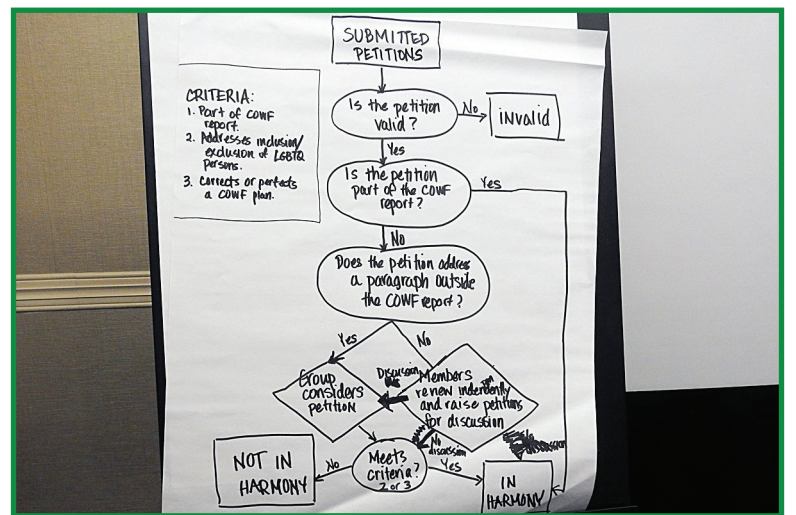 SUBMITTED
PETITIONS
CRITERIA:
1. Part of COWF
report.
2. Addresses inclusion/
exclusion of LGBTQ
Persons.
3. Corrects or perfects
a COWF plan.
Is the petition
valid?
No
invalid
Yes
Is the petition
part of the COWF
report?
Yes
No
Does the petition address
a paragraph outside
the COWF report?
Yes
No
Group
considers
petition
Discussion
Members
review independently
and raise petitions
for discussion
No
discussion
No
Discussion
NOT IN
HARMONY
No
Meets
criteria?
2 or 3
Yes
IN
HARMONY